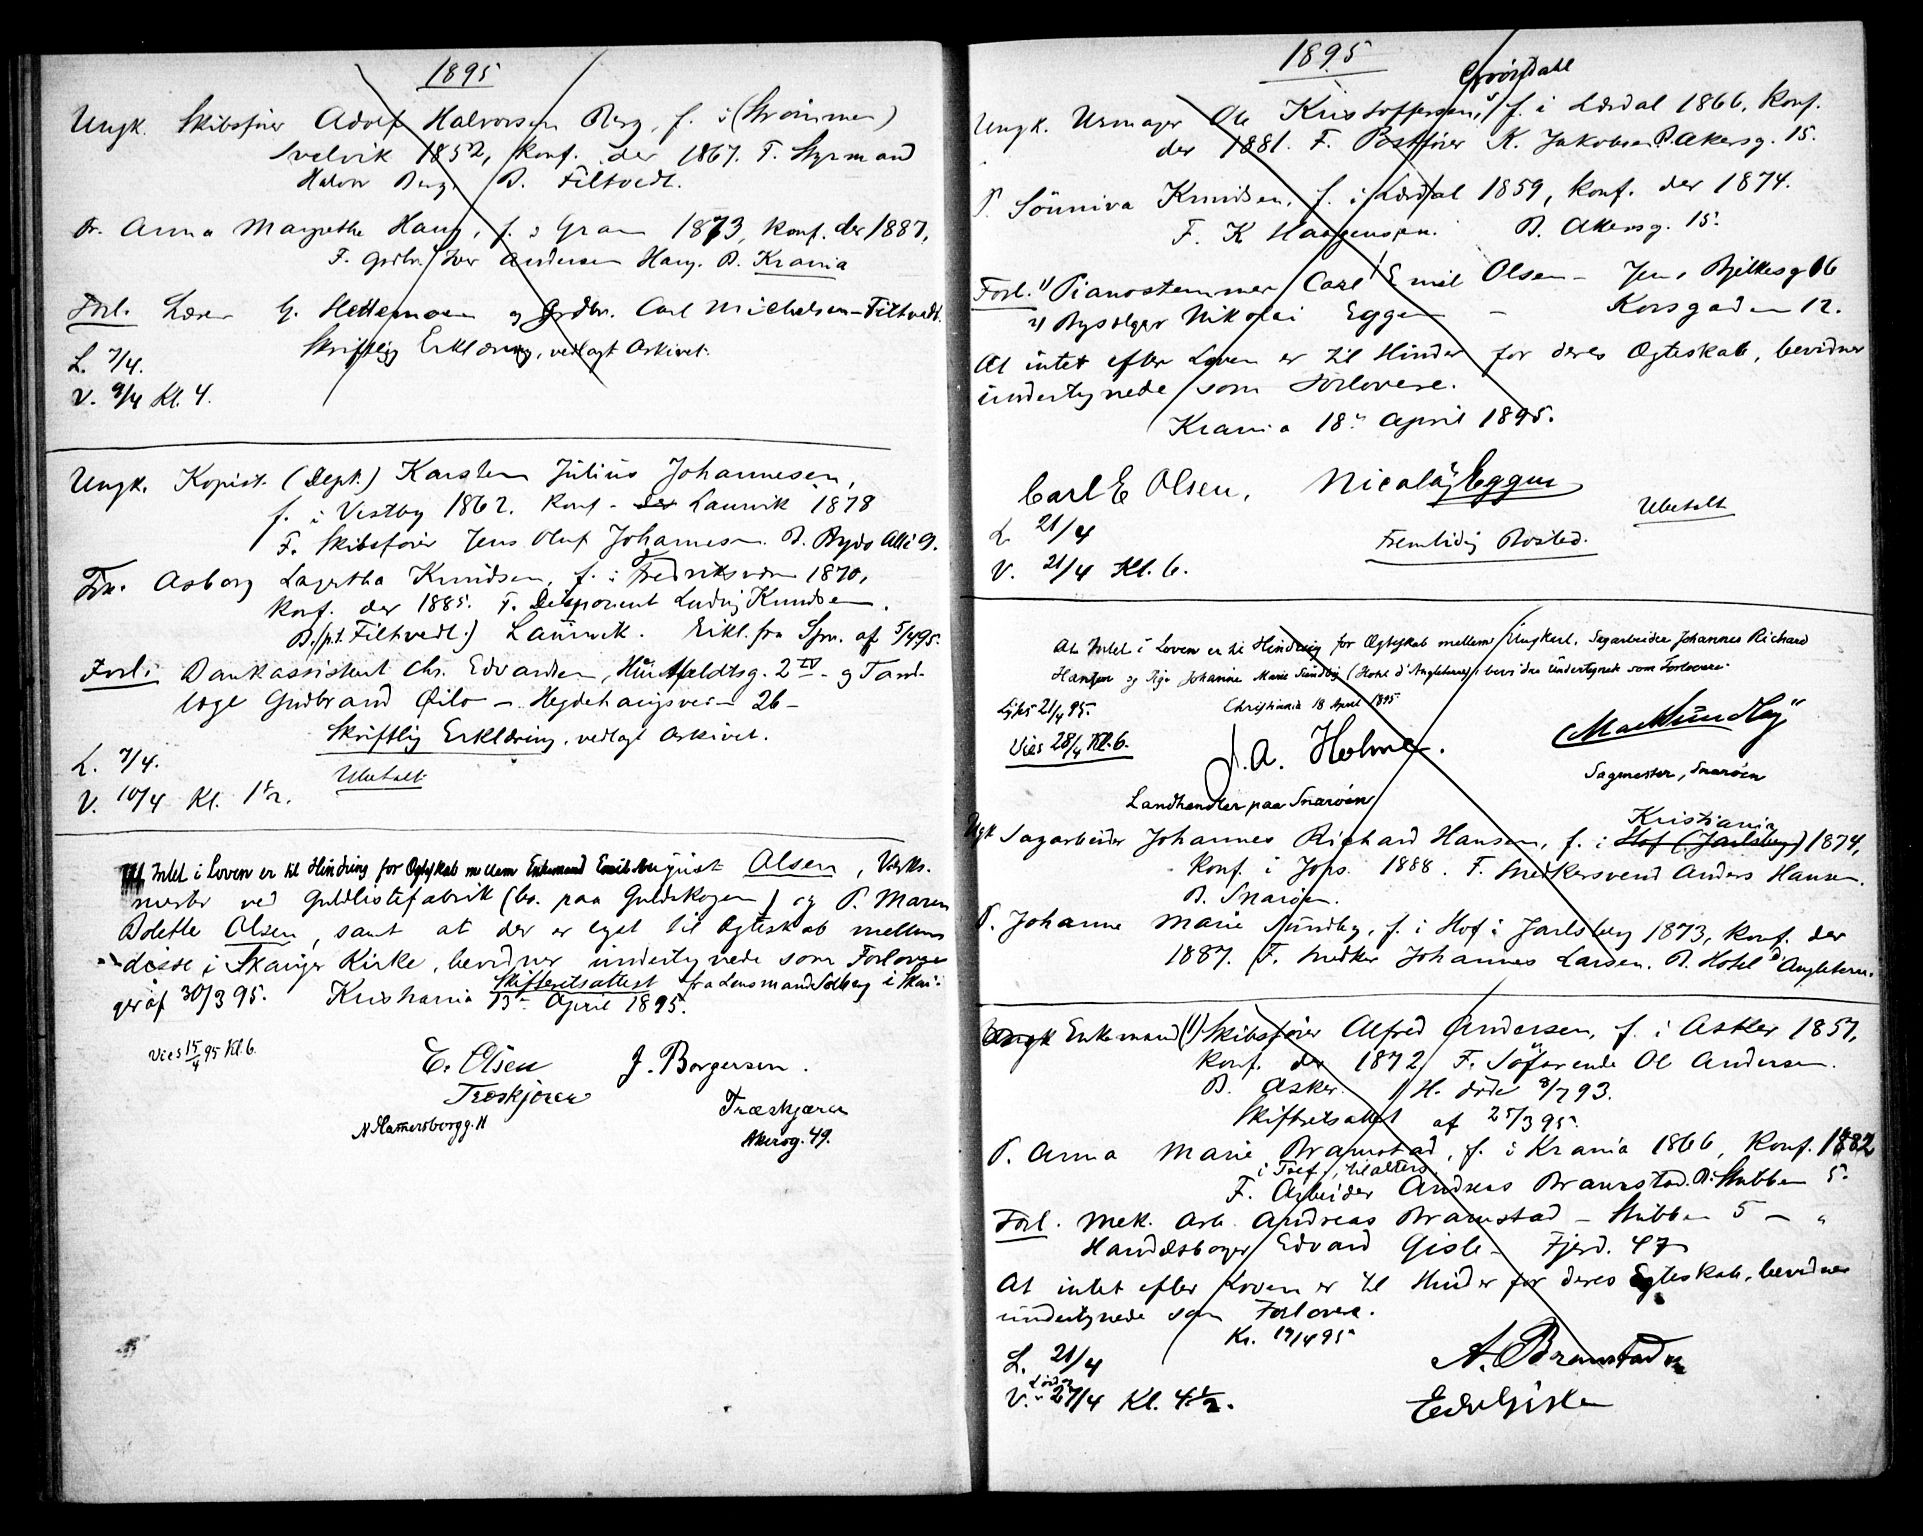 1895
Ungk. Skibsfører Adolf Halvorsen Berg, f. i (Strømmen)
Svelvik 1852, konf. der 1867. F. Styrmand
Halvor Berg. B. Filtvedt.
Fr. Anna Margrethe Haug, f. i Gran 1873, konf. der 1887,
F. Grdbr. Iver Andersen Haug. B. Krania
Forl. Lærer G. Hettemoen og Grdbr. Carl Michelsen - Filtvedt.
Skriftlig Erklæring, vedlagt Arkivet.
L. 7/4.
V. 9/4 Kl. 4.
Ungk. Kopist (Dept.) Karsten Julius Johannesen,
f. i Vestby 1862. Konf. der Laurvik 1878
F. Skibsfører Jens Oluf Johannesen. B. Bygdø Allé 9.
Frk. Asborg Lagertha Knudsen, f. i Fredriksværn 1870,
konf. der 1885. F. Disponent Ludvig Knudsen.
B. (p.t. Filtvedt.) Laurvik. Erkl. fra Spr. af 5/4 95.
Forl: Bankassistent Chr. Edvardsen, Huitfeldtsg. 2 IV - og Tand-
læge Gudbrand Øilo - Hegdehaugsvein 26 -
Skriftlig Erklæring, vedlagt Arkivet.
L. 7/4.
Ubetalt
V. 10/4 Kl. 1 1/2.
At Intet i Loven er til Hindring for Ægteskab mellem Enkemand Emil August Olsen, Værks-
mester ved Guldlistefabrik (bo. paa Guldskogen) og P. Maren
Bolette Olsen, samt at der er lyst til Ægteskab mellem
disse i Skauger Kirke, bevidner undertegnede som Forlovere
Skifteretsattest fra Lensmand Solberg i Skau-
ger af 30/3 95. Kristiania 13de April 1895.
Vies 15/4 95 Kl. 6.
E. Olsen J. Borgersen.
Træskjærer Træskjærer
N Hamersborgg. 11 Akersg. 49.
1895
Grøisdahl
Ungk. Urmager Ole Kristoffersen, f. i Lærdal 1866, konf.
der 1881. F. Postfører K. Jakobsen B. Akersg. 15.
P. Sønniva Knudsen, f. i Lærdal 1859, konf. der 1874.
F. K Haagensen. B. Akersg. 15.
Forl. 1) Pianostemmer Carl Emil Olsen - Jens Bjelkesg 16
2) Bysælger Nikolai Eggen - Korsgaden 12.
At intet efter Loven er til Hinder for deres Ægteskab, bevidner
undertegnede som Forlovere.
Krania 18de April 1895.
Carl E Olsen, Nicolay Eggen
L. 21/4
Fremtidig Bosted. Ubetalt
V. 21/4 Kl. 6.
At Intet i Loven er til Hindring for Ægteskab mellem Ungkarl, Sagarbeider Johannes Richard
Hansen og Pige Johanne Marie Sundby (Hotel d'Angleterre) bevidne undertegnede som Forlovere.
Christiania 18 April 1895
Lyst 21/4 95.
Vies 28/4 Kl. 6.
J. A. Holme. Mar Sundby
Landhandler paa Snarøen Sagmester, Snarøen
Kristiania
Ugk Sagarbeider Johannes Richard Hansen, f. i Hof (Jarlsberg) 1874,
konf. i Jops. 1888. F. Snedkersvend Anders Hansen.
B. Snarøen.
P. Johanne Marie Sundby, f. i Hof i Jarlsberg 1873, konf. der
1887. F. Snedker Johannes Larsen. B. Hotel d'Angleterre.
Ungk Enkemand (1) Skibsfører Alfred Andersen, f. i Asker 1857,
konf. der 1872 F. Søfarende Ole Andersen.
B. Asker. H. døde 8/7 93.
Skifteretsattest af 25/3 95.
P. Anna Marie Bramstad, f. i Krania 1866, konf. 1882
i Tref., til alters
F. Arbeider Andreas Bramstad. B. Stubben 5.
Forl. Mek. Arb. Andreas Bramstad - Stubben 5 -
Handelsborger Edvard Gisle - Fjerd. 47
At intet efter Loven er til Hinder for deres Ægteskab, bevidner
undertegnede som Forlovere.
Kr. 19/4 95
L. 21/4
Lørdag
V. 27/4 Kl. 4 1/2.
A. Bramstad
Edv Gisle